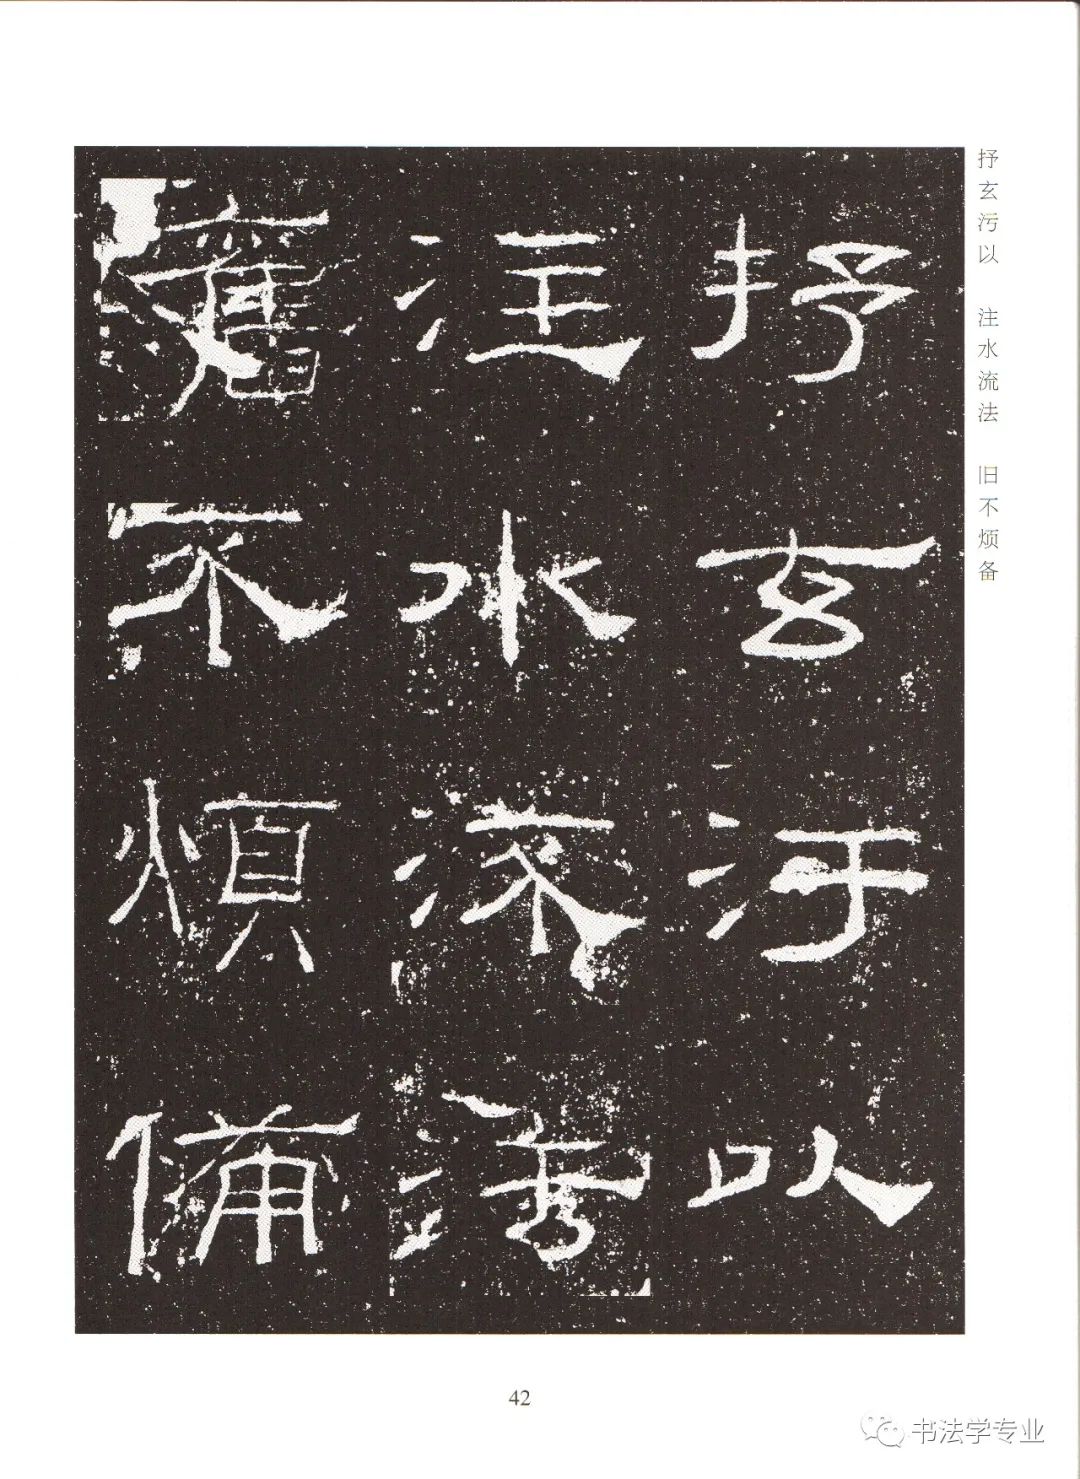 抒玄汙以
注水流法
舊不煩備
抒玄污以 注水流法 旧不烦备
42
书法学专业